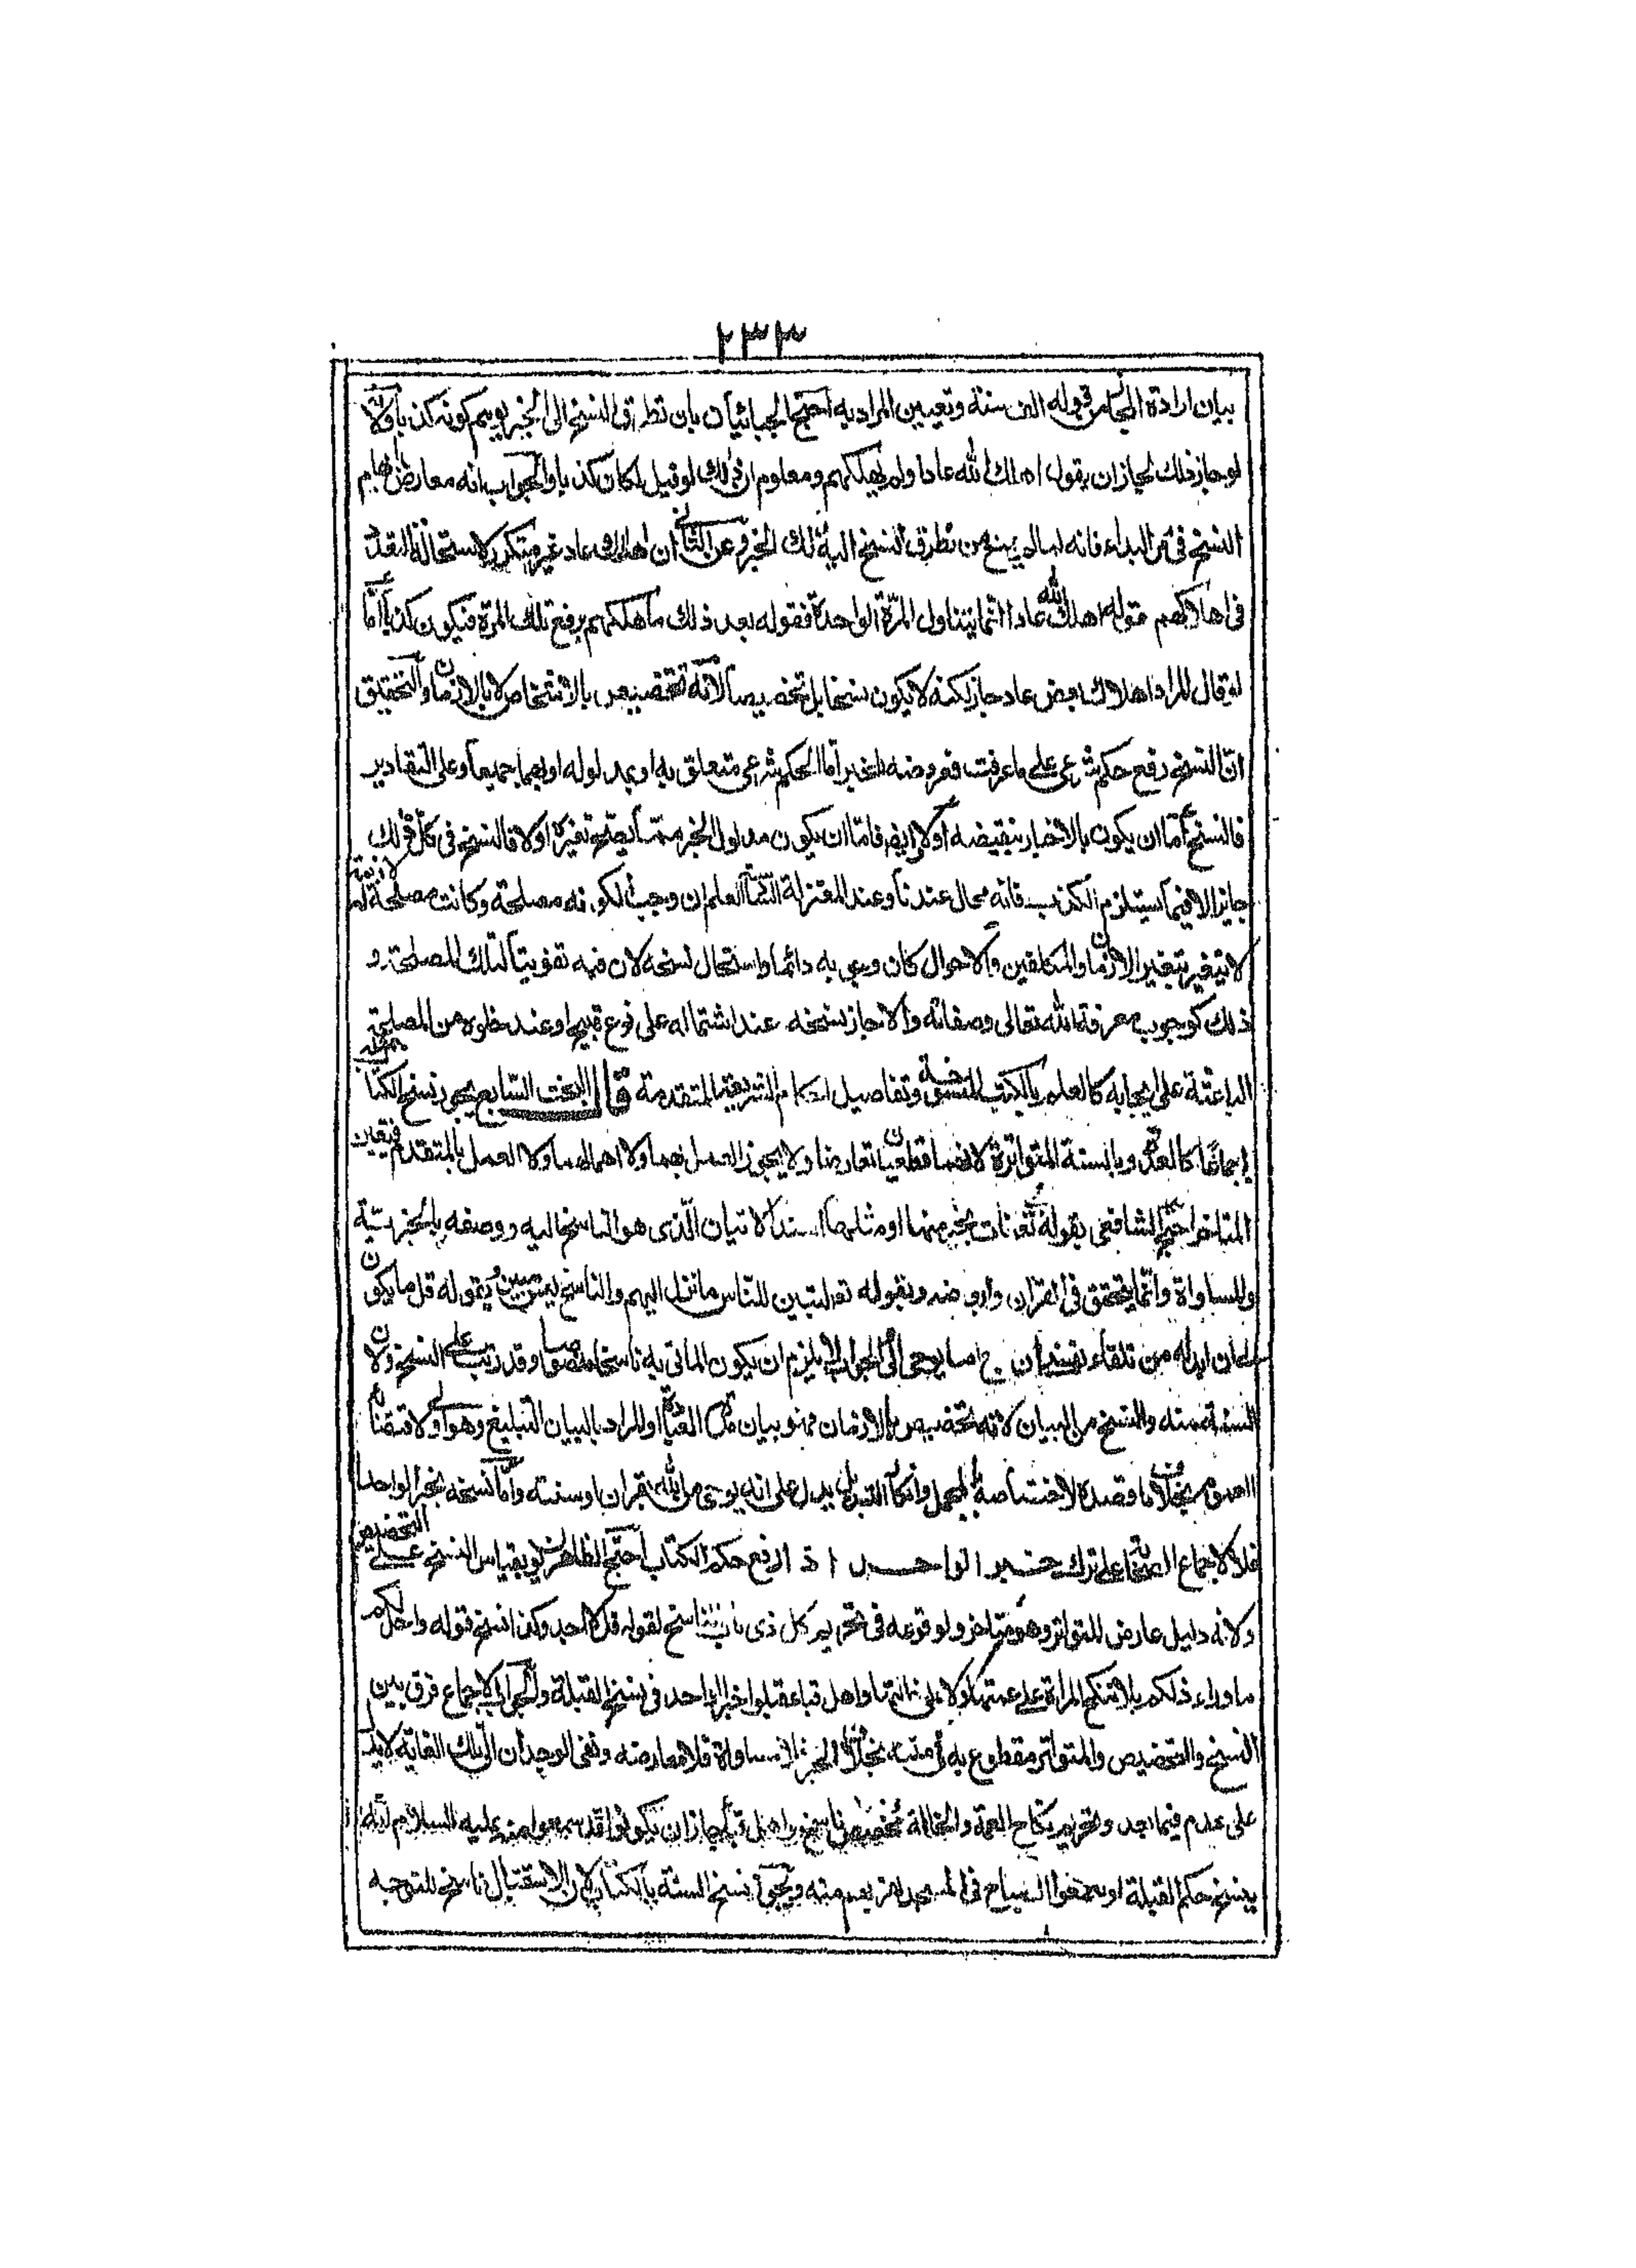 ٢٣٣
بيان ارادة المجاز في قوله الف سنة وتعيين المراد به احتج الجبائيان بان تطرق النسخ الى الخبر يوهم كونه كذبا ولانه
لو جاز ذلك لجاز ان يقول اهلك الله عادا ولم يهلكهم ومعلوم ان ذلك لو قيل لكان كذبا والجواب انه معارض بايهام
النسخ في الامر البداء فانه لما لم يمنع من تطرق النسخ اليه فكذلك الخبر وعن الثاني ان اهلاك عاد غير متكرر لاستحالة التعدد
في اهلاكهم فقوله اهلك الله عادا انما يتناول المرة الواحدة فقوله بعد ذلك ما اهلكهم يرفع تلك المرة فيكون كذبا اما
لو قال المراد اهلاك بعض عاد جاز لكنه لا يكون نسخا بل تخصيصا لانه تخصيص بالاشخاص لا بالازمان والتحقيق
ان النسخ رفع حكم شرعي على ما عرفت فعروضه للخبر اما لحكم شرعي متعلق به او بمدلوله او بهما جميعا وعلى التقادير
فالنسخ اما ان يكون بالاخبار بنقيضه او لا وايضا فاما ان يكون مدلول الخبر مما يصح تغيره او لا فالنسخ في كل ذلك
جايز الا فيما يستلزم الكذب فانه محال عندنا وعند المعتزلة الثالث العلم ان وجب لكونه مصلحة وكانت مصلحة لازمة
لا يتغير بتغير الازمان والمكلفين والاحوال كان وجوبه دائما واستحال نسخه لان فيه تفويتا لتلك المصلحة و
ذلك كوجوب معرفة الله تعالى وصفاته والا جاز نسخه عند اشتماله على نوع قبيح او عند خلوه من المصلحة
الباعثة على ايجابه كالعلم بالكتب المنسوخة وتفاصيل احكام الشريعة المتقدمة قال البحث السابع يجوز نسخ الكتاب بمثله
اجماعا كالعدة وبالسنة المتواترة لانهما قطعيان تعارضا ولا يجوز العمل بهما ولا اهمالهما ولا العمل بالمتقدم فتعين
المتاخر احتج الشافعي بقوله تعالى نات بخير منها او مثلها اسند الاتيان الذي هو الناسخ اليه ووصفه بالخيرية
والمساواة وانما يتحقق في القران وايضا وبقوله تع لتبين للناس ما نزل اليهم والناسخ ليس مبين وبقوله قل ما يكون
لي ان ابدله من تلقاء نفسي ان اتبع الا ما يوحى الي والجواب لا يلزم ان يكون الماتي به ناسخا وقد رتب على النسخ ولان
السنة منه والنسخ من البيان لانه تخصيص بالازمان فهو بيان مدة العبادة او المراد بالبيان التبليغ وهو اولى لاقتضائه
العموم بخلاف ما وقصده لاختصاصه بالمجمل وانكار التبديل يدل على انه يوحى من الله بقران او سنة واما نسخه بخبر الواحد
فلا لاجماع الصحابة على ترك خبر الواحد اذا رفع حكم الكتاب احتج الظاهريون بقياس النسخ على التخصيص
ولانه دليل عارض المتواتر وهو متاخر ولوقوعه في تحريم كل ذي ناب ناسخ لقوله قل لا اجد وكذا نسخ قوله واحل لكم
ما وراء ذلكم بلا تنكح المراة على عمتها ولا على خالتها واهل قباء قبلوا خبر الواحد في نسخ القبلة والجواب الاجماع فرق بين
النسخ والتخصيص والمتواتر مقطوع به في متنه بخلاف الخبر فلا مساواة فلا معارضة ونفي الوجدان الى تلك الغاية لا يدل
على عدم فيما بعد وتحريم نكاح العمة والخالة تخصيص لا نسخ واهل قبا جاز ان يكونوا قد سمعوا منه عليه السلام انه
ينسخ حكم القبلة او سمعوا الصياح في المسجد لقربهم منه ويجوز نسخ السنة بالكتاب لان الاستقبال ناسخ للتوجه